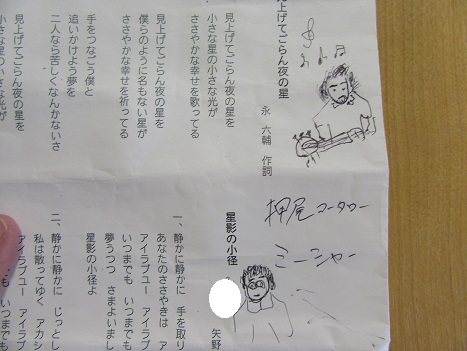 見上げてごらん夜の星
永 六輔 作詞
見上げてごらん夜の星を
小さな星の小さな光が
ささやかな幸せを歌ってる
見上げてごらん夜の星を
僕らのように名もない星が
ささやかな幸せを祈ってる
手をつなごう僕と
追いかけよう夢を
二人なら苦しくなんかないさ
見上げてごらん夜の星を
小さな星の小さな光が
押尾コータロー
ミーシャー
星影の小径
矢野
一、静かに静かに 手を取り
あなたのささやきは ア
アイラブユー アイラブ
いつまでも いつまでも
夢うつつ さまよいまし
星影の小径よ
二、静かに静かに じっとし
私は散ってゆく アカシ
アイラブユー アイラブ
いつまでも